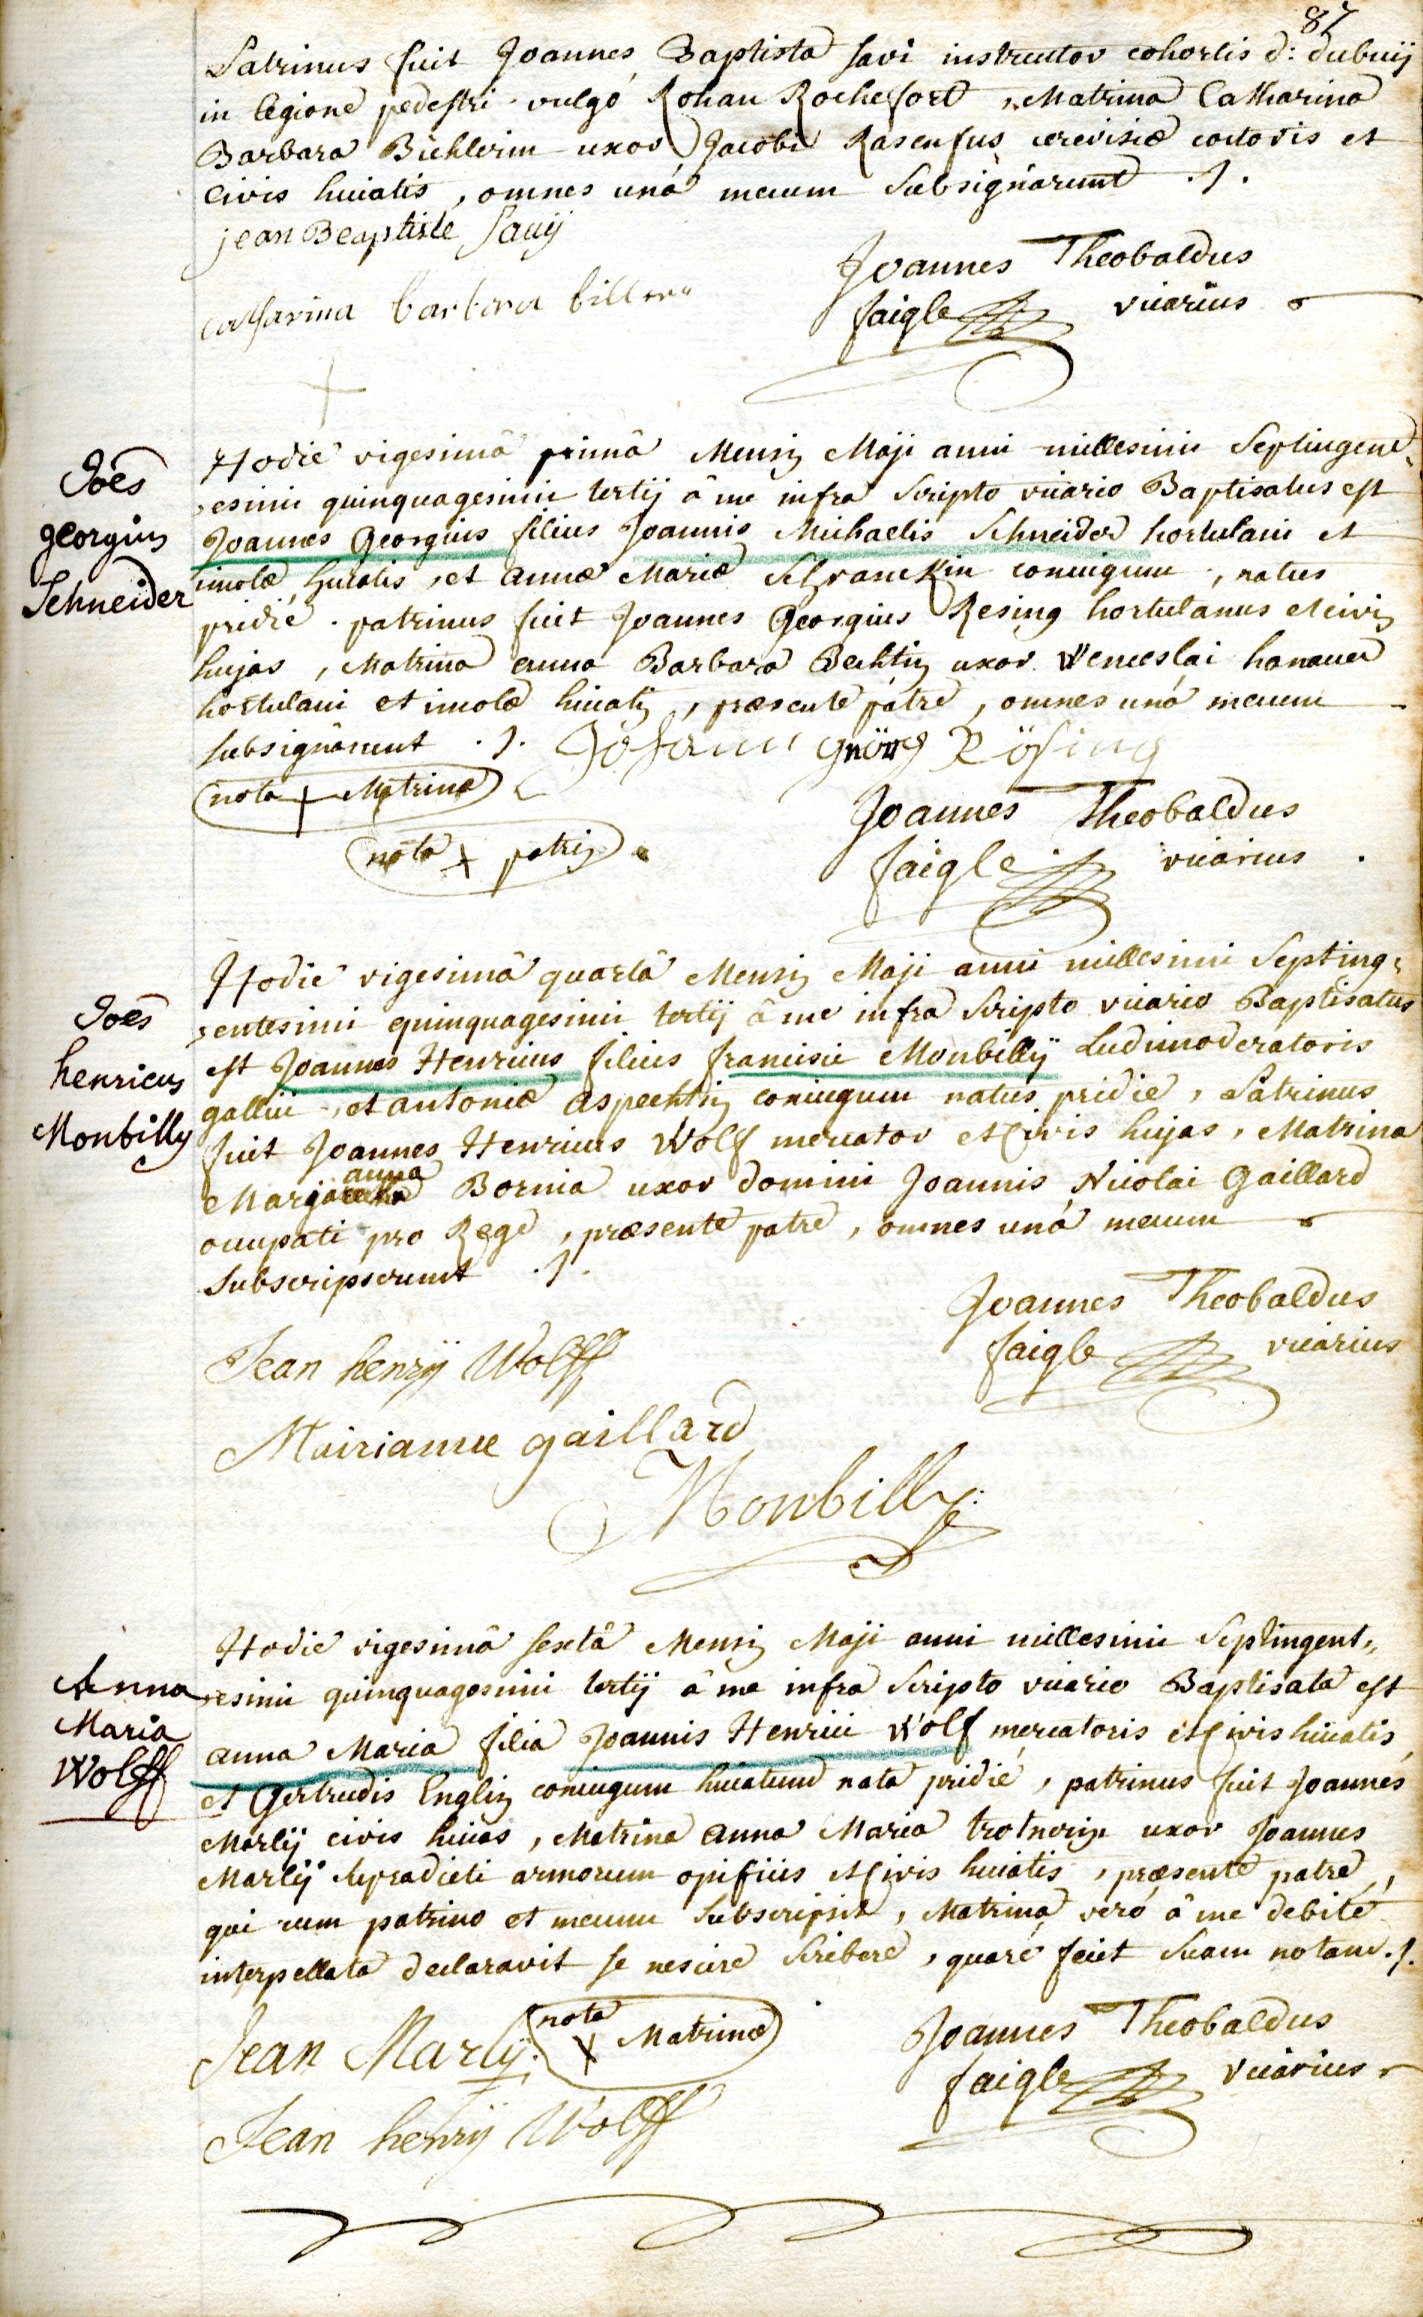 87
Patrinus fuit Joannes Baptista savi instructor cohortis d: dubuij
in legione pedestri vulgò Rohan Rochefort, Matrina Catharina
Barbara Bichlerin uxor Jacobi Rasenfus cerevisiæ coctoris et
Civis huiatis, omnes unà mecum Subsignarunt ./.
jean Beaptiste Savij
Joannes Theobaldus
faigle vicarius
catharina barbara
Joês
georgius
Schneider
Hodiè vigesimâ primâ Mensis Maji anni millesimi Septingent-
esimi quinquagesimi tertij â me infra Scripto vicario Baptisatus est
Joannes Georgius filius Joannis Michaelis Schneider hortulani et
incolæ huiatis, et annæ Mariæ coniugum, natus
pridiè. patrinus fuit Joannes Georgius Resing hortulanus et civis
hujas, Matrina anna Barbara Bechtin uxor Wenceslai hanauer
hortulani et incolæ huiatis, præsente patre, omnes unà mecum
subsignârunt ./. Johann Geörg Rösing
nota + Matrinæ
Joannes Theobaldus
nota + patris
faigle vicarius .
Joês
henricus
Monbilly
Hodiè vigesimâ quartâ Mensis Maji anni millesimi Septing-
entesimi quinquagesimi tertij â me infra Scripto vicario Baptisatus
est Joannes Henricus filius francisci Monbillÿ Ludimoderatoris
gallici, et antoniæ aspechtin coniugum natus pridie, Patrinus
fuit Joannes Henricus Wolf mercator et Civis hujas, Matrina
anna
Margaretha Bornia uxor domini Joannis Nicolai Gaillard
occupati pro Rege, præsente patre, omnes unà mecum
Subscripserunt ./.
Joannes Theobaldus
faigle vicarius
Jean henrÿ Wolff
Mairianne gaillard
Monbilly
Anna
Maria
Wolff
Hodiè vigesimâ sextâ Mensis Maji anni millesimi Septingent-
esimi quinquagesimi tertij â me infra Scripto vicario Baptisata est
anna Maria filia Joannis Henrici Wolf mercatoris et Civis huiatis,
et Gertrudis Englin coniugum huiatium nata pridiè, patrinus fuit Joannes
Marlÿ civis huias, Matrina anna Maria trotnerin uxor Joannes
Marlÿ supradicti armorum opificis et Civis huiatis, præsente patre,
qui cum patrino et mecum Subscripsit, Matrina verò â me debitè
interpellata declaravit se nescire Scribere, quarè fecit Suam notam ./.
Jean Marlÿ. nota + Matrinæ
Joannes Theobaldus
faigle vicarius
Jean henrÿ Wolff